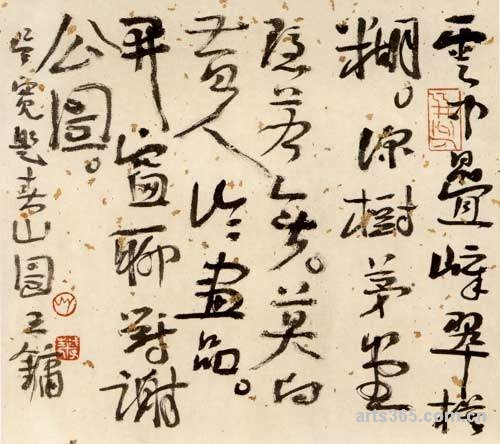 雲中疊嶂翠模
糊。深樹茅堂
隱若無。莫向
人論畫品。
开窗聊對謝
公圖。
吴寬題春山圖 王鏞
arts365.com.cn